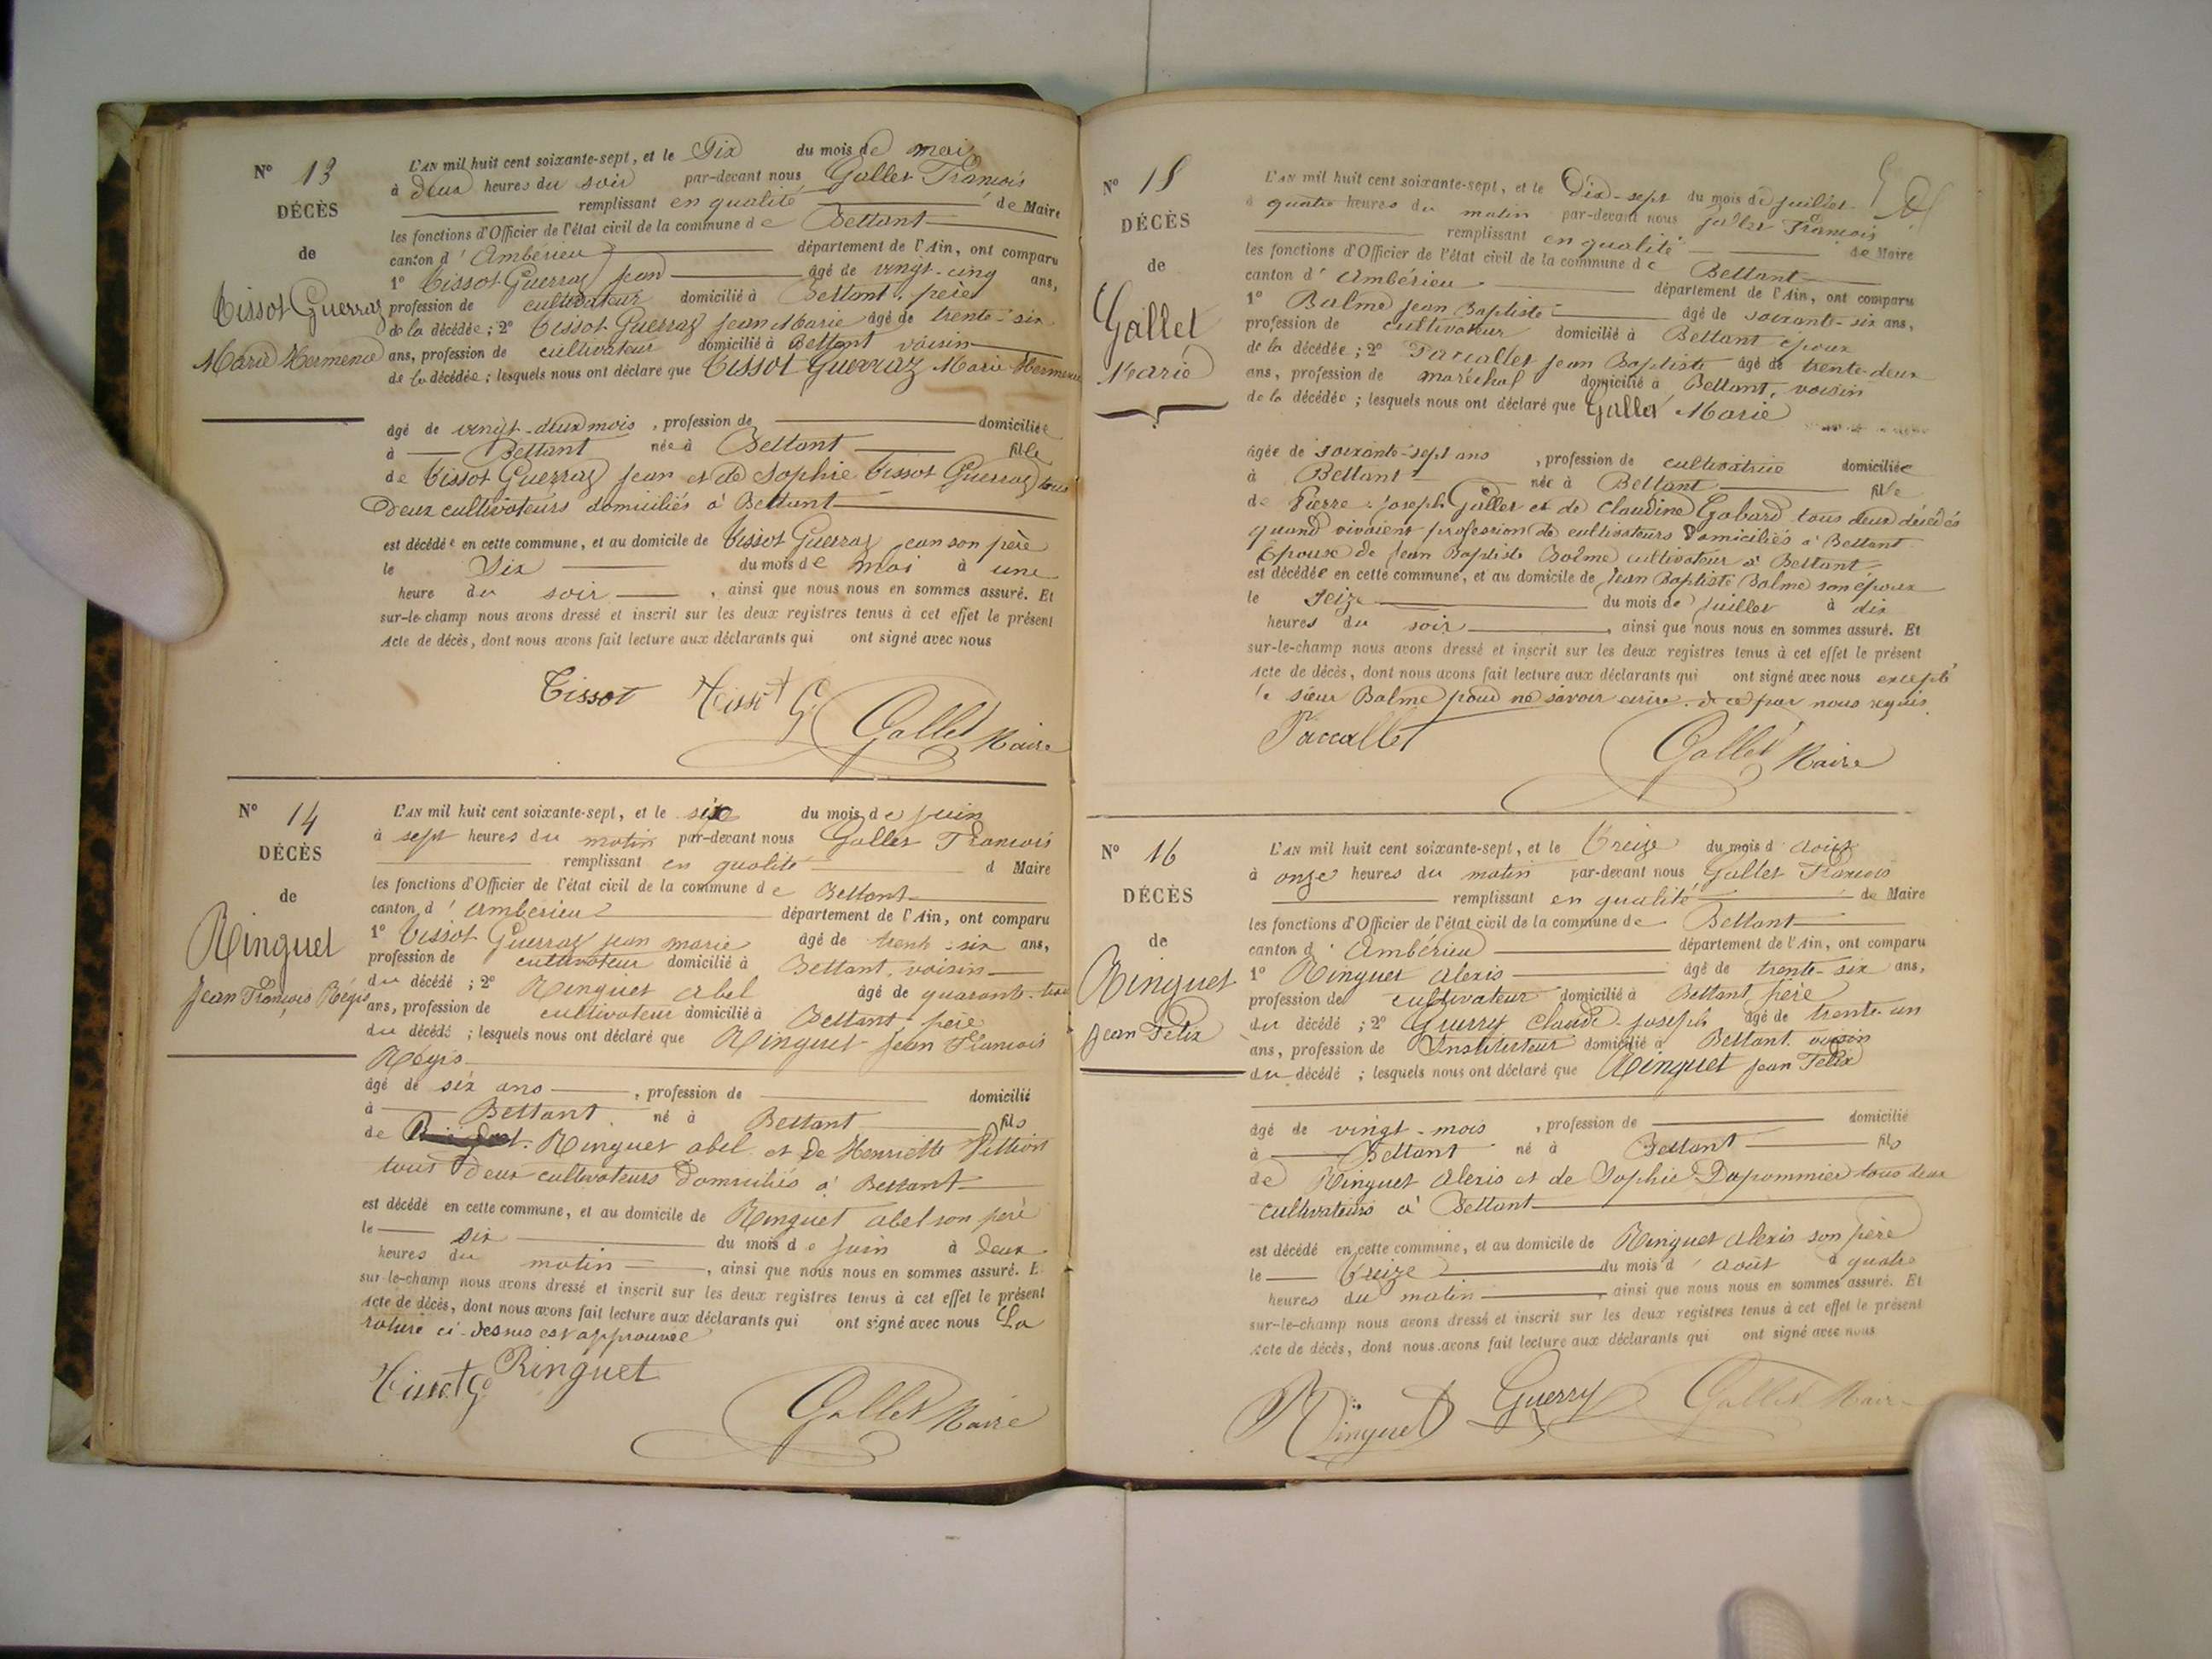 N° 13
DÉCÈS
de
Tissot Guerraz
Marie Hermenie
L'AN mil huit cent soixante-sept, et le Dix du mois de mai
à deux heures du soir par-devant nous Gallet François
remplissant en qualité de Maire
les fonctions d'Officier de l'état civil de la commune de Bettant
canton d'Ambérieu département de l'Ain, ont comparu
1° Tissot Guerraz Jean âgé de vingt-cinq ans,
profession de cultivateur domicilié à Bettant, père
de la décédée ; 2° Tissot Guerraz Jean Marie âgé de trente-six
ans, profession de cultivateur domicilié à Bettant voisin
de la décédée ; lesquels nous ont déclaré que Tissot Guerraz Marie Hermenie
âgé de vingt-deux mois, profession de domiciliée
à Bettant née à Bettant fille
de Tissot Guerraz Jean et de Sophie Tissot Guerraz tous
deux cultivateurs domiciliés à Bettant
est décédée en cette commune, et au domicile de Tissot Guerraz Jean son père
le Dix du mois de mai à une
heure du soir, ainsi que nous nous en sommes assuré. Et
sur-le-champ nous avons dressé et inscrit sur les deux registres tenus à cet effet le présent
Acte de décès, dont nous avons fait lecture aux déclarants qui ont signé avec nous
Tissot Tissot G Gallet Maire
N° 14
DÉCÈS
de
Ringuet
Jean François Régis
L'AN mil huit cent soixante-sept, et le six du mois de juin
à sept heures du matin par-devant nous Gallet François
remplissant en qualité d Maire
les fonctions d'Officier de l'état civil de la commune de Bettant
canton d'Ambérieu département de l'Ain, ont comparu
1° Tissot Guerraz jean marie âgé de trente-six ans,
profession de cultivateur domicilié à Bettant, voisin
du décédé ; 2° Ringuet Abel âgé de quarante-trois
ans, profession de cultivateur domicilié à Bettant père
du décédé ; lesquels nous ont déclaré que Ringuet Jean François
Régis
âgé de six ans, profession de domicilié
à Bettant né à Bettant fils
de Ringuet abel et de Henriette Pittion
tous deux cultivateurs domiciliés à Bettant
est décédé en cette commune, et au domicile de Ringuet abel son père
le six du mois de juin à deux
heures du matin, ainsi que nous nous en sommes assuré. E
sur-le-champ nous avons dressé et inscrit sur les deux registres tenus à cet effet le présent
Acte de décès, dont nous avons fait lecture aux déclarants qui ont signé avec nous La
rature ci-dessus est approuvée
Tissot G Ringuet Gallet Maire
N° 15
DÉCÈS
de
Gallet
Marie
L'AN mil huit cent soixante-sept, et le Dix-sept du mois de juillet
à quatre heures du matin par-devant nous Gallet François
remplissant en qualité de Maire
les fonctions d'Officier de l'état civil de la commune de Bettant
canton d'Ambérieu département de l'Ain, ont comparu
1° Balme Jean Baptiste âgé de soixante-six ans,
profession de cultivateur domicilié à Bettant époux
de la décédée ; 2° Paccallet Jean Baptiste âgé de trente-deux
ans, profession de maréchal domicilié à Bettant, voisin
de la décédée ; lesquels nous ont déclaré que Gallet Marie
âgée de soixante-sept ans, profession de cultivatrice domiciliée
à Bettant née à Bettant fille
de Pierre-Joseph Gallet et de Claudine Gobard tous deux décédés
quand vivaient profession de cultivateurs domiciliés à Bettant
Epouse de Jean Baptiste Balme cultivateur à Bettant
est décédée en cette commune, et au domicile de Jean Baptiste Balme son époux
le seize du mois de juillet à dix
heures du soir, ainsi que nous nous en sommes assuré. Et
sur-le-champ nous avons dressé et inscrit sur les deux registres tenus à cet effet le présent
Acte de décès, dont nous avons fait lecture aux déclarants qui ont signé avec nous excepté
le sieur Balme pour ne savoir écrire de ce par nous requis
Paccallet Gallet Maire
N° 16
DÉCÈS
de
Ringuet
Jean Felix
L'AN mil huit cent soixante-sept, et le Treize du mois d'août
à onze heures du matin par-devant nous Gallet François
remplissant en qualité de Maire
les fonctions d'Officier de l'état civil de la commune de Bettant
canton d'Ambérieu département de l'Ain, ont comparu
1° Ringuet Alexis âgé de trente-six ans,
profession de cultivateur domicilié à Bettant, père
du décédé ; 2° Guerry Claude-Joseph âgé de trente-un
ans, profession de Instituteur domicilié à Bettant voisin
du décédé ; lesquels nous ont déclaré que Ringuet Jean Felix
âgé de vingt-mois, profession de domicilié
à Bettant né à Bettant fils
de Ringuet Alexis et de Sophie Dupommier tous deux
cultivateurs à Bettant
est décédé en cette commune, et au domicile de Ringuet Alexis son père
le treize du mois d'août à quatre
heures du matin, ainsi que nous nous en sommes assuré. Et
sur-le-champ nous avons dressé et inscrit sur les deux registres tenus à cet effet le présent
Acte de décès, dont nous avons fait lecture aux déclarants qui ont signé avec nous
Ringuet Guerry Gallet Maire